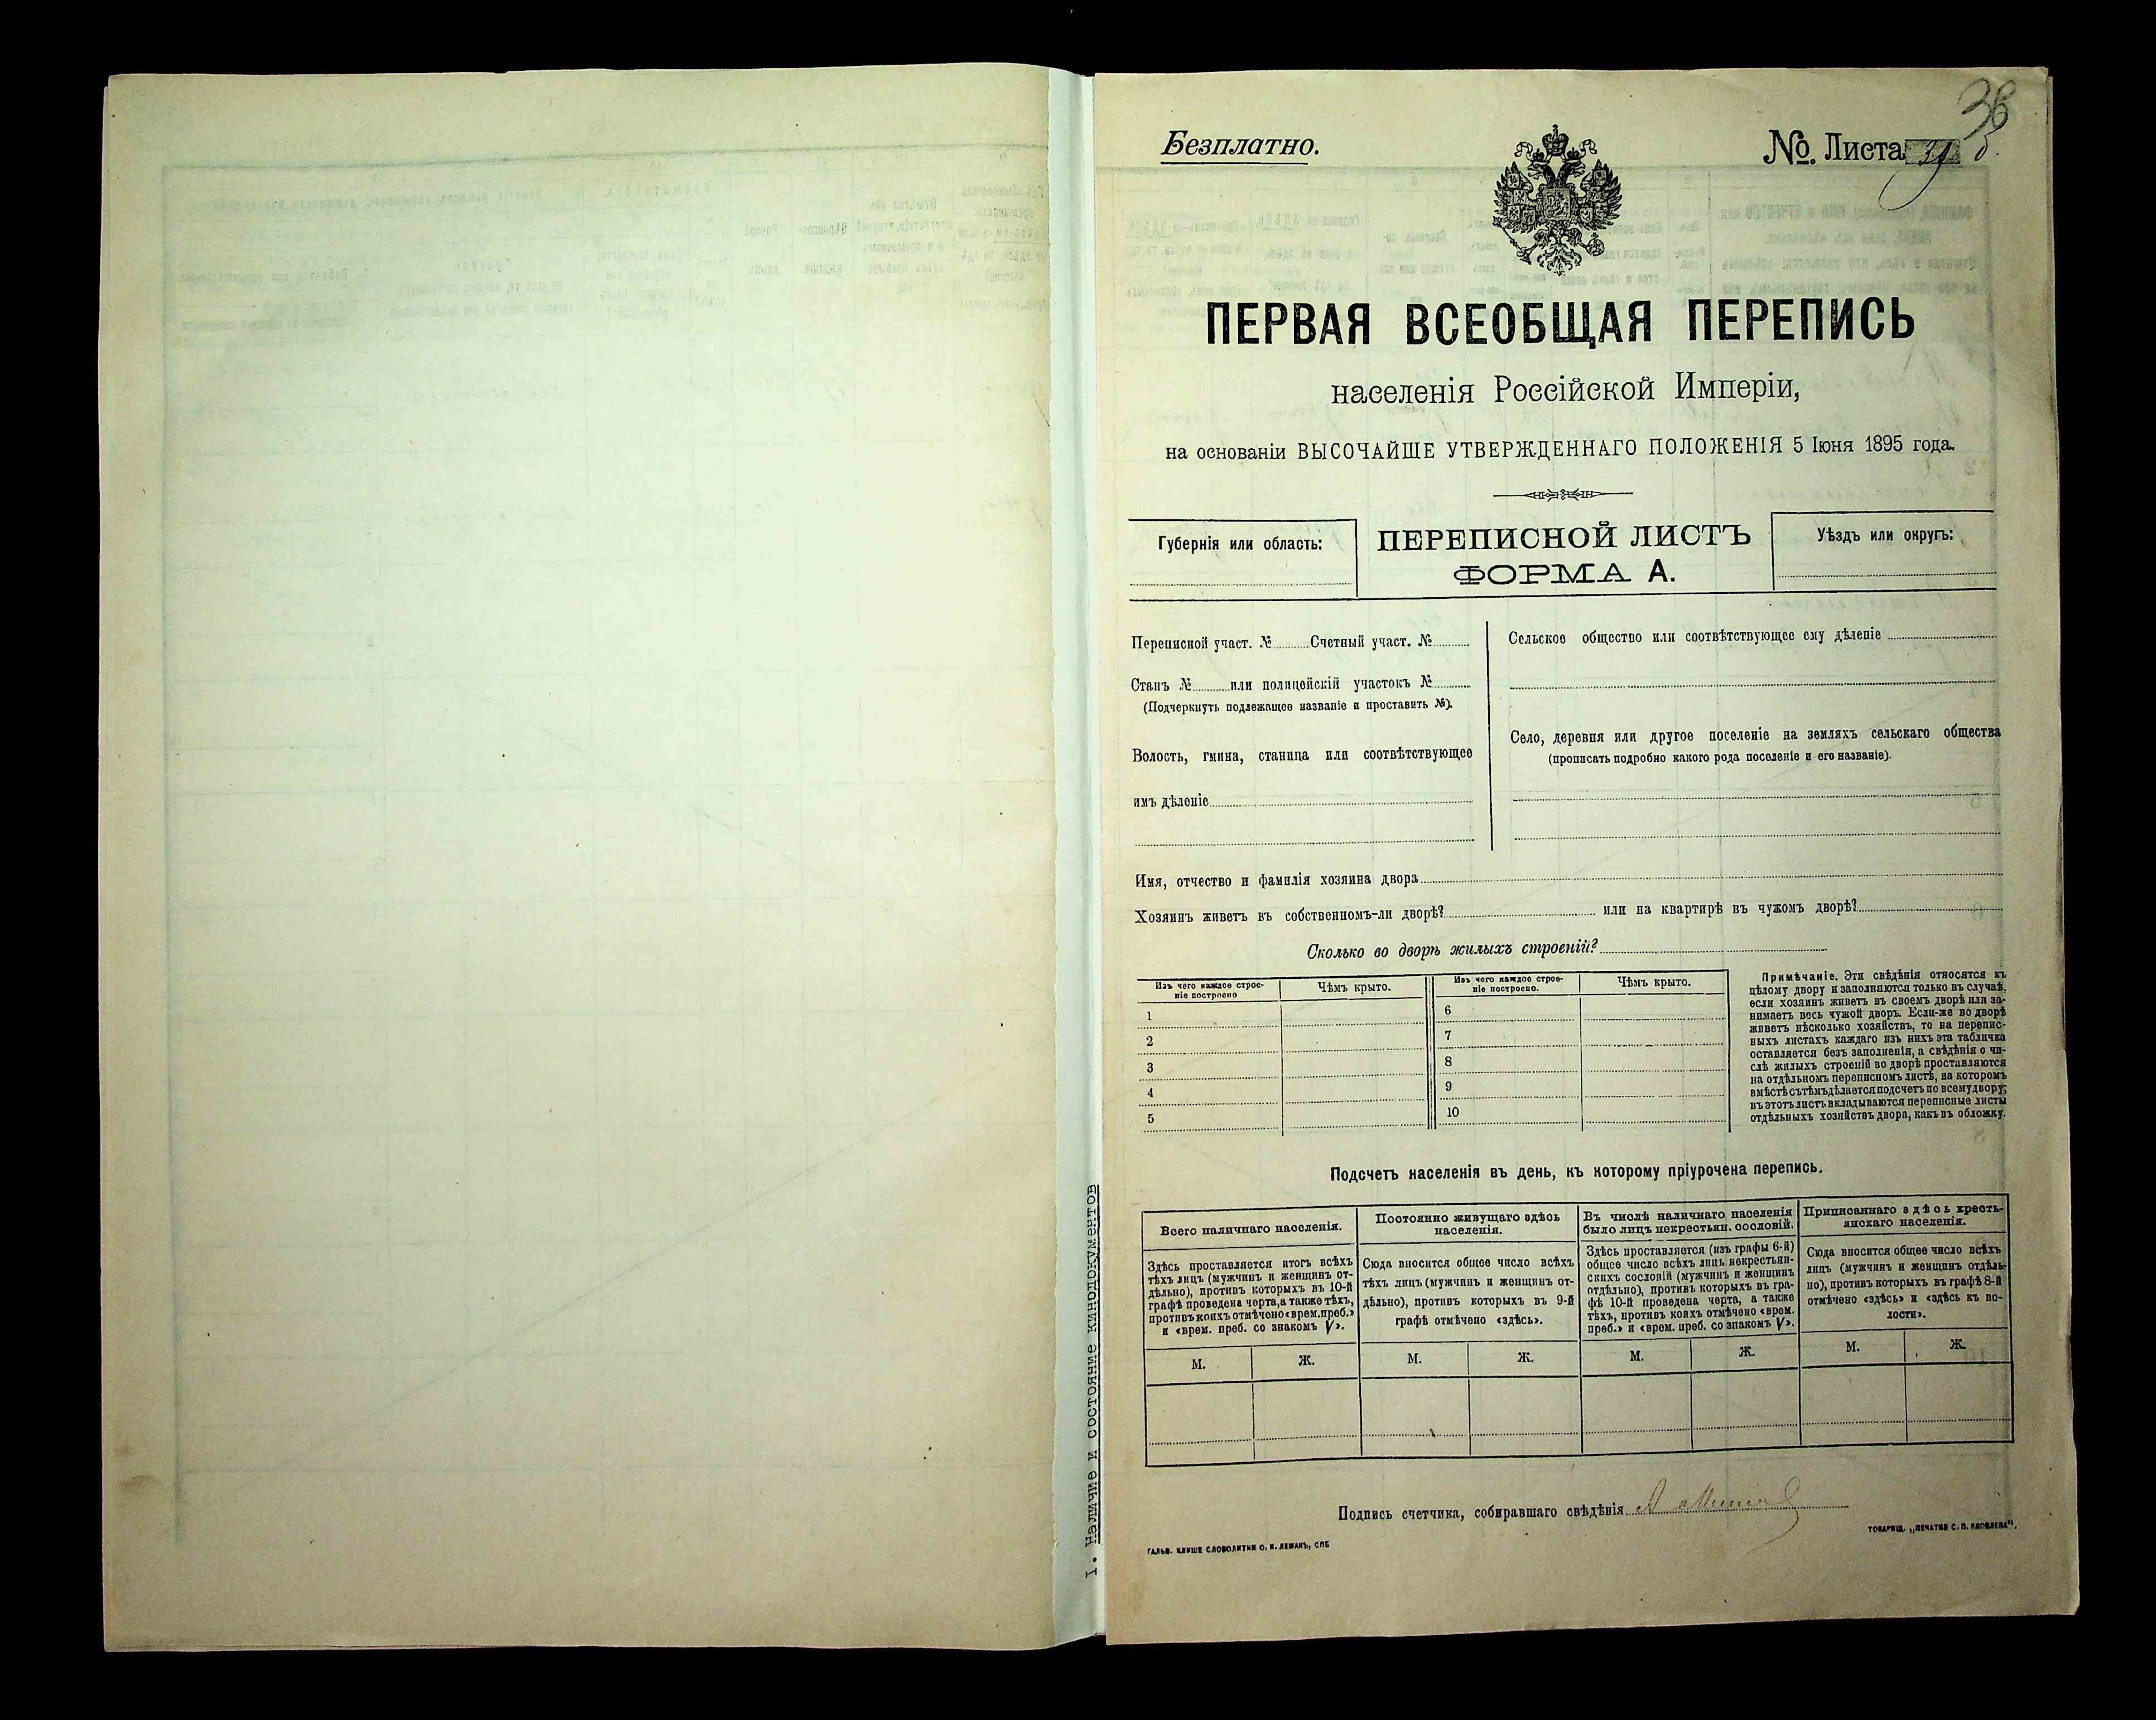 38
Безплатно.
№. Листа
ПЕРВАЯ ВСЕОБЩАЯ ПЕРЕПИСЬ
населенія Россійской Имперіи,
на основаніи ВЫСОЧАЙШЕ УТВЕРЖДЕННАГО ПОЛОЖЕНІЯ 5 Іюня 1895 года.
Губернія или область:
ПЕРЕПИСНОЙ ЛИСТЪ
ФОРМА А.
Уѣздъ или округъ:
Переписной участ. № Счетный участ. №
Станъ № или полицейскій участокъ №
(Подчеркнуть подлежащее названіе и проставить №).
Волость, гмина, станица или соотвѣтствующее
имъ дѣленіе
Сельское общество или соотвѣтствующее ему дѣленіе
Село, деревня или другое поселеніе на земляхъ сельскаго общества
(прописать подробно какого рода поселеніе и его названіе).
Имя, отчество и фамилія хозяина двора
Хозяинъ живетъ въ собственномъ-ли дворѣ? или на квартирѣ въ чужомъ дворѣ?
Сколько во дворѣ жилыхъ строеній?
Изъ чего каждое строе-
ніе построено
Чѣмъ крыто.
1
2
3
4
5
Изъ чего каждое строе-
ніе построено.
Чѣмъ крыто.
6
7
8
9
10
Примѣчаніе. Эти свѣдѣнія относятся къ
цѣлому двору и заполняются только въ случаѣ,
если хозяинъ живетъ въ своемъ дворѣ или за-
нимаетъ весь чужой дворъ. Если-же во дворѣ
живетъ нѣсколько хозяйствъ, то на перепис-
ныхъ листахъ каждаго изъ нихъ эта табличка
оставляется безъ заполненія, а свѣдѣнія о чи-
слѣ жилыхъ строеній во дворѣ проставляются
на отдѣльномъ переписномъ листѣ, на которомъ
вмѣстѣ съ тѣмъ дѣлается подсчетъ по всему двору;
въ этотъ листъ вкладываются переписные листы
отдѣльныхъ хозяйствъ двора, какъ въ обложку.
Подсчетъ населенія въ день, къ которому пріурочена перепись.
Всего наличнаго населенія.
Здѣсь проставляется итогъ всѣхъ
тѣхъ лицъ (мужчинъ и женщинъ от-
дѣльно), противъ которыхъ въ 10-й
графѣ проведена черта, а также тѣхъ,
противъ коихъ отмѣчено «врем. преб.»
и «врем. преб. со знакомъ V».
М. Ж.
Постоянно живущаго здѣсь
населенія.
Сюда вносится общее число всѣхъ
тѣхъ лицъ (мужчинъ и женщинъ от-
дѣльно), противъ которыхъ въ 9-й
графѣ отмѣчено «здѣсь».
М. Ж.
Въ числѣ наличнаго населенія
было лицъ некрестьян. сословій.
Здѣсь проставляется (изъ графы 6-й)
общее число всѣхъ лицъ некрестьян-
скихъ сословій (мужчинъ и женщинъ
отдѣльно), противъ которыхъ въ гра-
фѣ 10-й проведена черта, а также
тѣхъ, противъ коихъ отмѣчено «врем.
преб.» и «врем. преб. со знакомъ V».
М. Ж.
Приписаннаго здѣсь кресть-
янскаго населенія.
Сюда вносится общее число всѣхъ
лицъ (мужчинъ и женщинъ отдѣль-
но), противъ которыхъ въ графѣ 8-й
отмѣчено «здѣсь» и «здѣсь къ во-
лости».
М. Ж.
Подпись счетчика, собиравшаго свѣдѣнія
ГАЛЬВ. КЛИШЕ СЛОВОЛИТНИ О. И. ЛЕМАНЪ, СПБ
ТОВАРИЩ. „ПЕЧАТНЯ С. П. ЯКОВЛЕВА".
I. Наличие и состояние кинодокументов